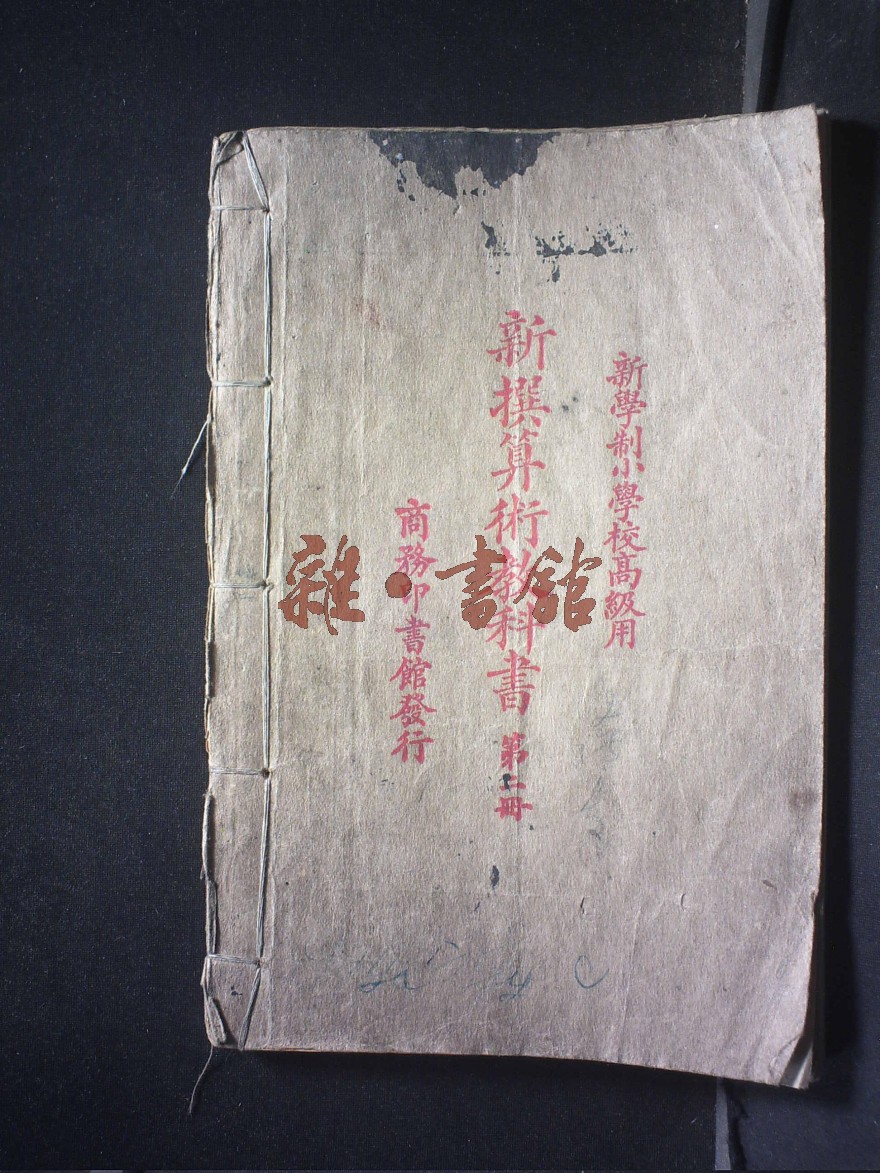 新學制小學校高級用
新撰算術教科書 第二冊
商務印書館發行
雜·書館